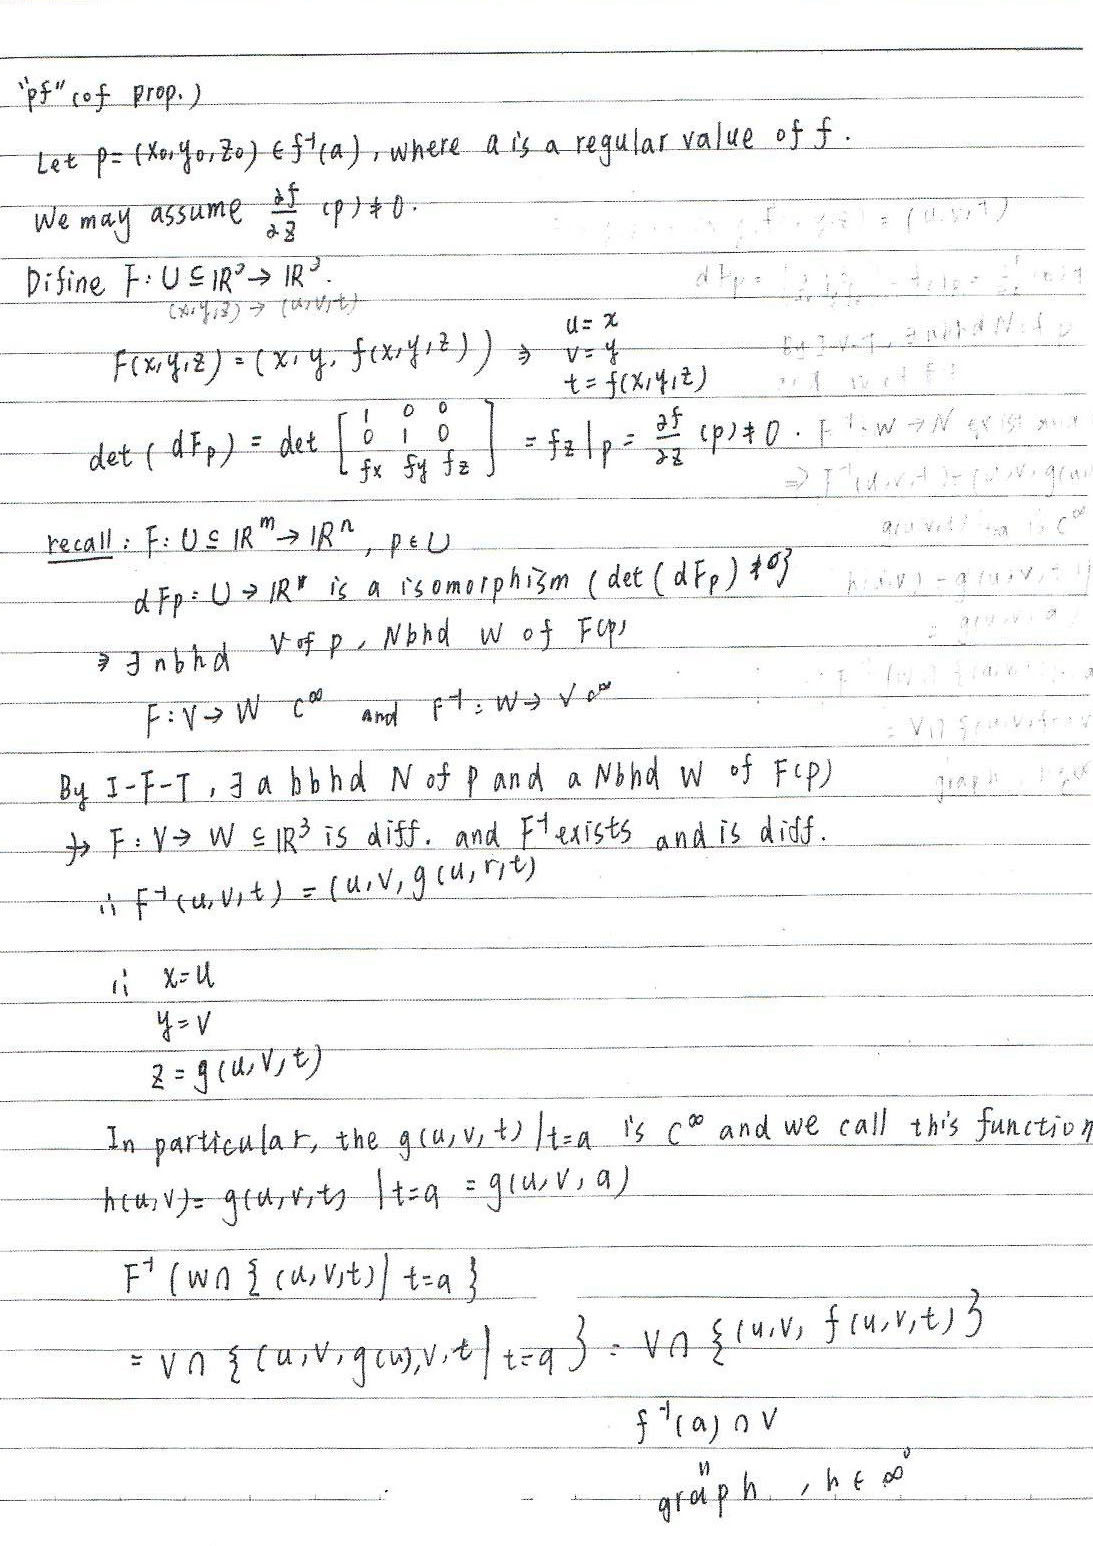 "pf" (of prop.)
Let p = (x₀, y₀, z₀) ∈ f⁻¹(a), where a is a regular value of f.
We may assume ∂f/∂z (p) ≠ 0.
Difine F: U ⊆ ℝ³ → ℝ³.
(x,y,z) → (u,v,t)
F(x,y,z) = (x, y, f(x,y,z)) ⇒ u = x
v = y
t = f(x,y,z)
det(dFp) = det [1 0 0; 0 1 0; fx fy fz] = fz|p = ∂f/∂z (p) ≠ 0.
recall: F: U ⊆ ℝᵐ → ℝⁿ, p ∈ U
dFp: U → ℝⁿ is a isomorphism (det(dFp) ≠ 0}
⇒ ∃ nbhd V of p, Nbhd W of F(p)
F: V → W C^∞ and F⁻¹: W → V C^∞
By I-F-T, ∃ a bbhd N of p and a Nbhd W of F(p)
F: V → W ⊆ ℝ³ is diff. and F⁻¹ exists and is diff.
∴ F⁻¹(u,v,t) = (u, v, g(u,r,t)
∴ x = u
y = v
z = g(u,v,t)
In particular, the g(u,v,t)|t=a is C^∞ and we call this function
h(u,v) = g(u,v,t) |t=a = g(u,v,a)
F⁻¹(W ∩ { (u,v,t) | t=a }
= V ∩ { (u, v, g(u), v, t | t=a } = V ∩ { (u,v, f(u,v,t) }
f⁻¹(a) ∩ V
"
graph , h ∈ ∞